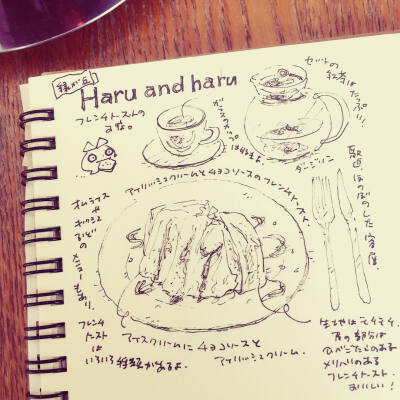 緑が丘
Haru and haru
フレンチトーストの
お店。
ガラスのカップ
は好きよ。
セットの
紅茶は
たっぷり!
ダージリン
アイリッシュクリームとチョコソースのフレンチトースト
駅近
ほのぼのした客層。
オムライス
や
キッシュ
などの
メニューもあり。
フレンチ
トーストは
いろいろ種類があるよ。
アイスクリームに チョコソースと
アイリッシュクリーム。
生地はモチモチ。
耳の部分は
食べごたえのある
メリハリのある
フレンチトースト。
おいしい!